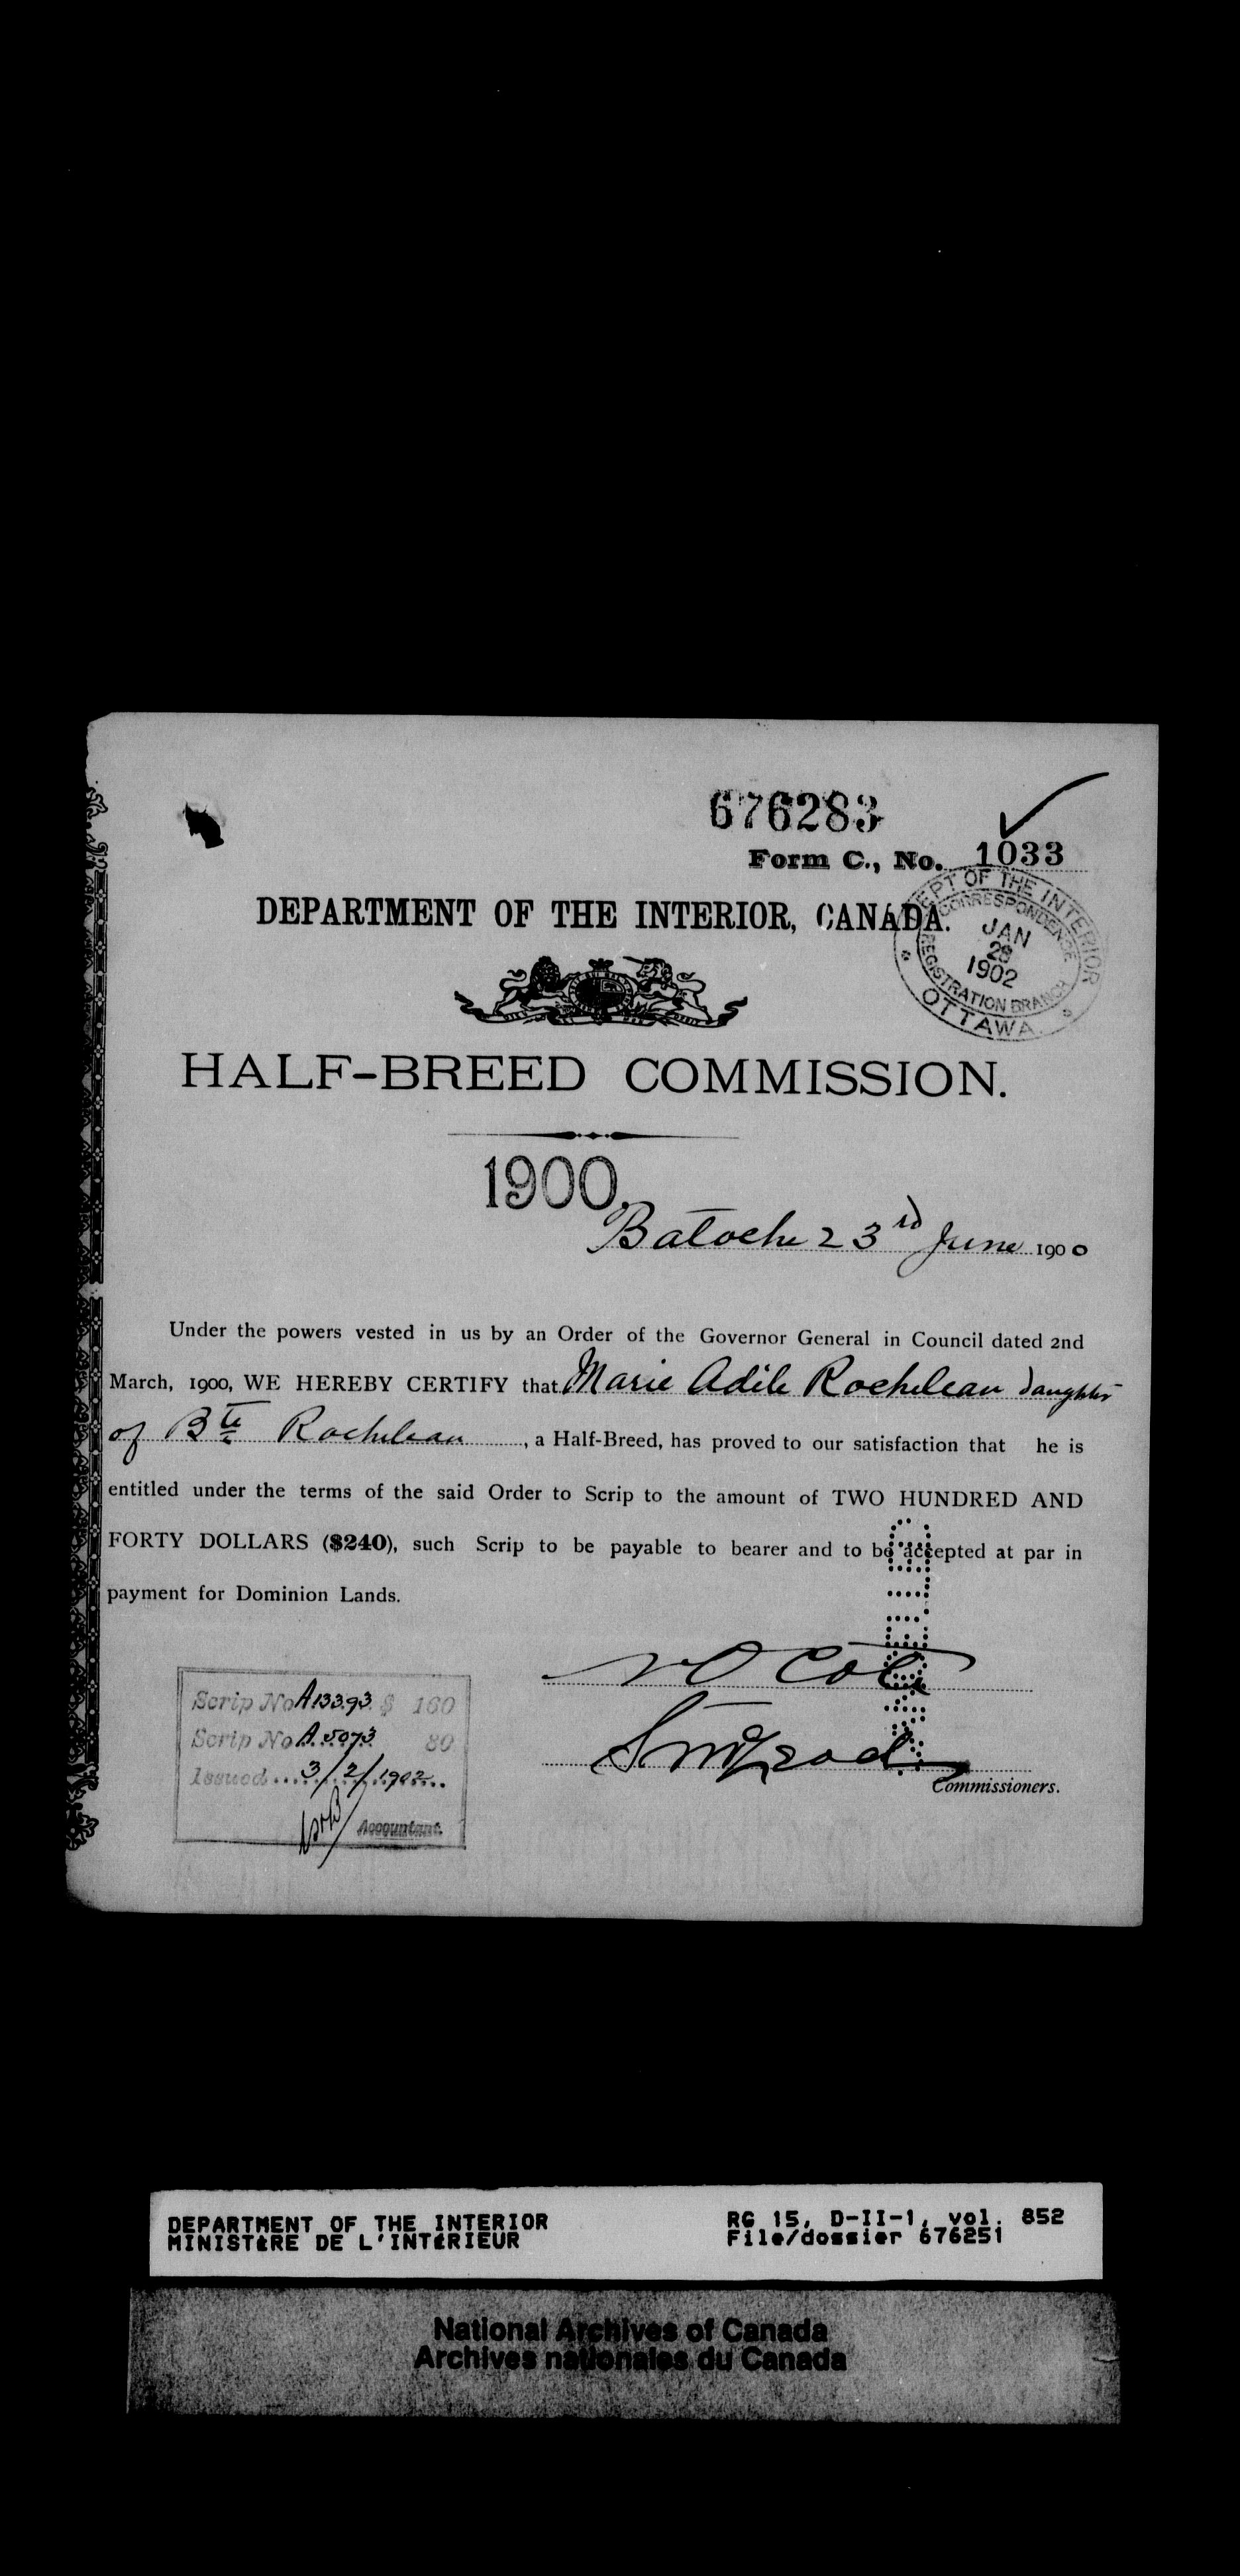 676283
Form C., No. 1033
DEPT OF THE INTERIOR
CORRESPONDENCE
JAN
1902
REGISTRATION BRANCH
OTTAWA
DEPARTMENT OF THE INTERIOR, CANADA.
HALF-BREED COMMISSION.
1900.
Batoche 23rd June 1900
Under the powers vested in us by an Order of the Governor General in Council dated 2nd
March, 1900, WE HEREBY CERTIFY that Marie Adile Rochelean daughter
of Bte Rochelean, a Half-Breed, has proved to our satisfaction that he is
entitled under the terms of the said Order to Scrip to the amount of TWO HUNDRED AND
FORTY DOLLARS ($240), such Scrip to be payable to bearer and to be accepted at par in
payment for Dominion Lands.
Scrip No A13393 $ 160
Scrip No A.5073 80
Issued 3/2/1902
Accountant.
Commissioners.
DEPARTMENT OF THE INTERIOR
MINISTÈRE DE L'INTÉRIEUR
RG 15, D-II-1, vol. 852
File/dossier 676251
National Archives of Canada
Archives nationales du Canada